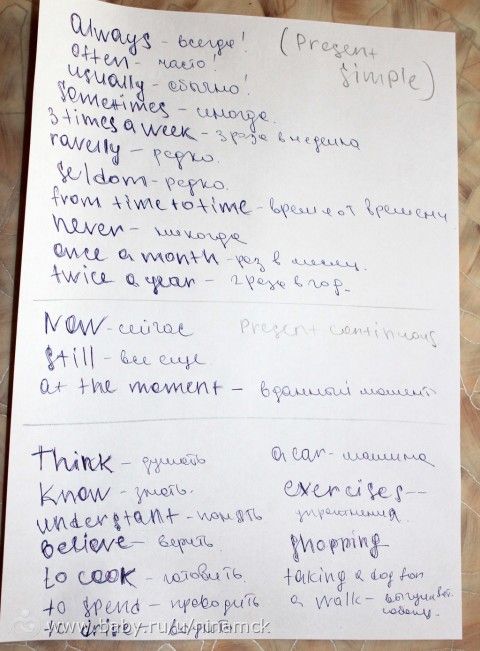 always - всегда! (Present
often - часто! Simple)
usually - обычно!
sometimes - иногда.
3 times a week - 3 раза в неделна
ravelly - редко.
seldom - редко.
from time to time - время от времени
never - никогда
once a month - раз в месяц.
twice a year - 2 раза в год.
Now - сейчас Present continuous
still - все еще.
at the moment - в данный момент
think - думать
know - знать.
understant - понять
believe - верить.
to cook - готовить.
to spend - проводить
to drive -
a car - машина
exercises -
упражнения.
shopping
taking a dog for
a walk - выгуливать
собаку.
www.baby.ru/u/ninamck